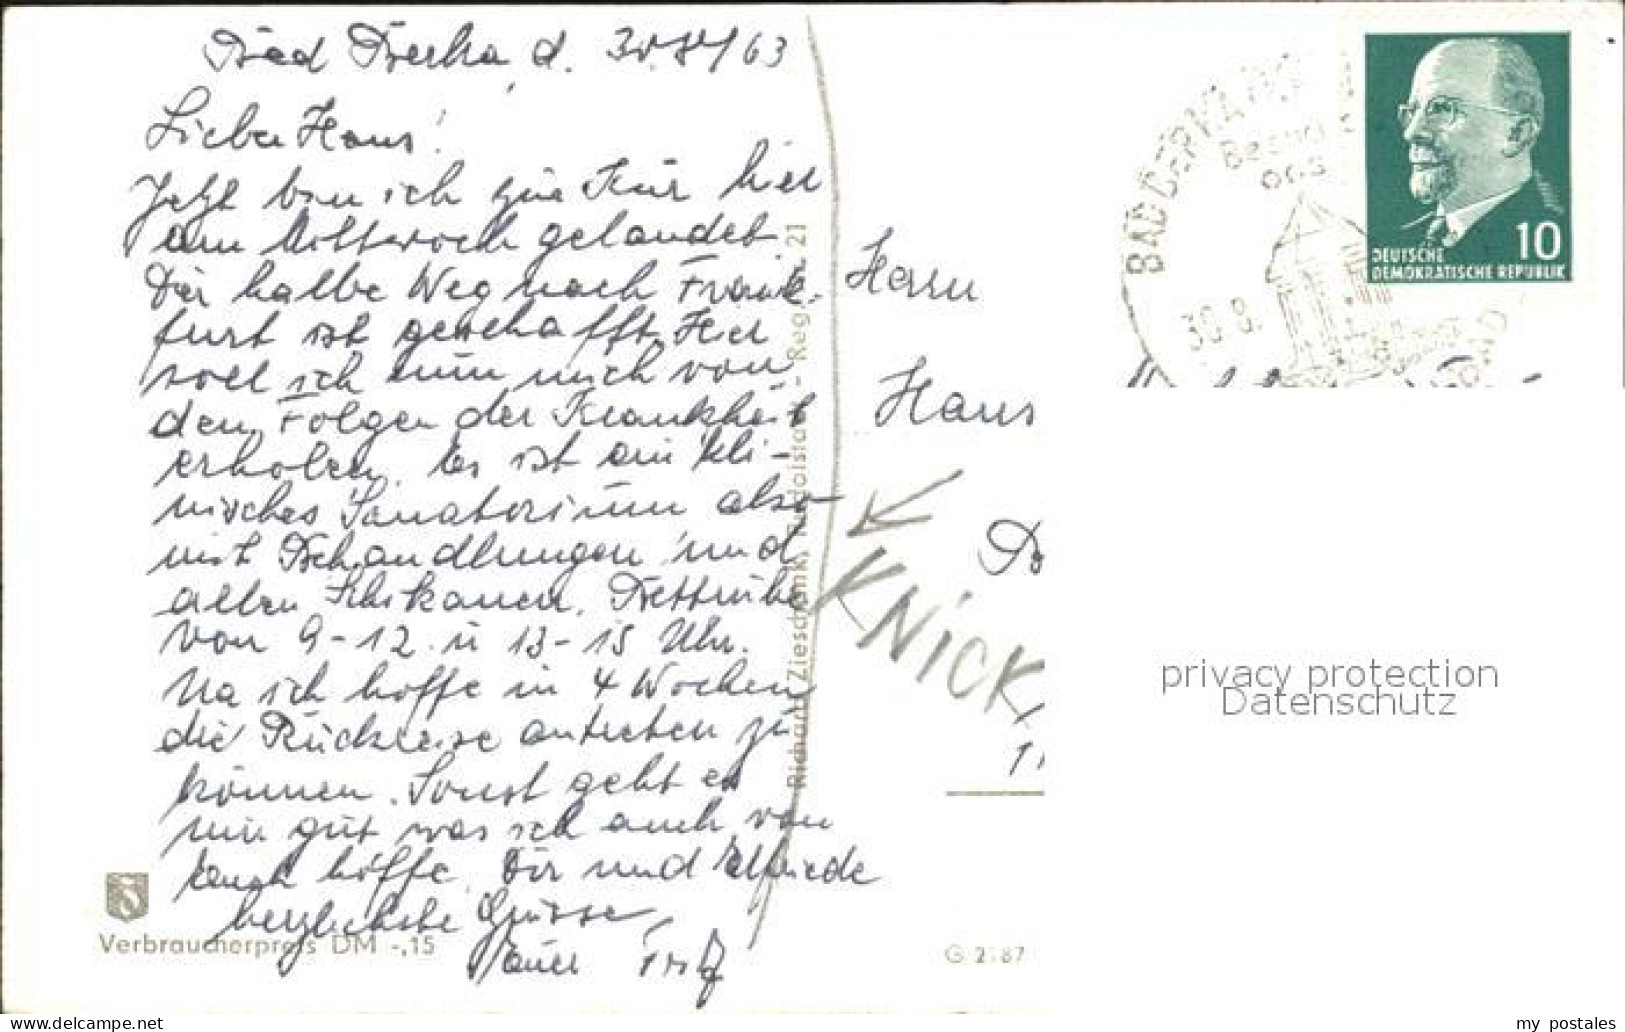 Bad Berka, d. 30.8./63
Lieber Hans!
Jetzt bin ich zur Kur hier
am Mittwoch gelandet.
Der halbe Weg nach Frank-
furt ist geschafft. Hier
soll ich nun mich von
den Folgen der Krankheit
erholen. Es ist ein kli-
nisches Sanatorium also
mit Behandlungen und
allen Schikanen. Bettruhe
von 9-12 u 13-15 Uhr.
Na ich hoffe in 4 Wochen
die Rückreise antreten zu
können. Sonst geht es
mir gut was ich auch von
Euch hoffe. Dir und Elfriede
herzlichste Grüsse
Euer
Verbraucherpreis DM -,15
Richard Zieschank, Rudolstadt - Reg. 21
Herrn
Hans
KNICK
G 2187
BAD BERKA
Besucht
das
30.8.
DEUTSCHE
DEMOKRATISCHE REPUBLIK
10
privacy protection
Datenschutz
www.delcampe.net
my_postales